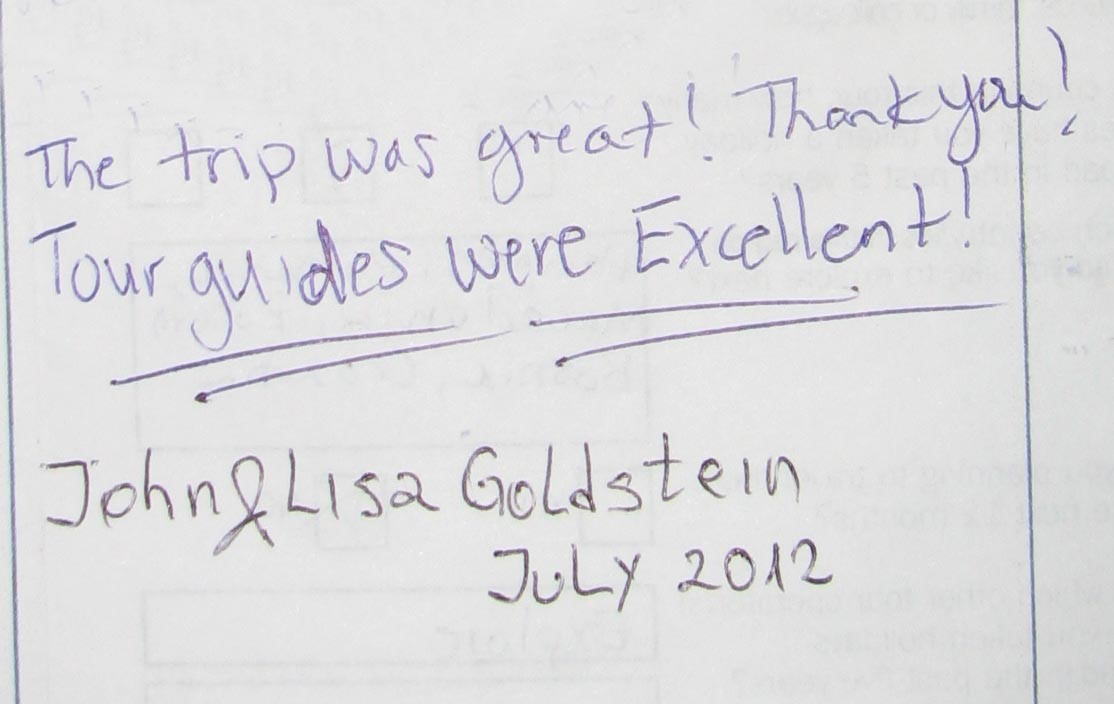 The trip was great! Thank you!
Tour guides were Excellent!
John & Lisa Goldstein
July 2012